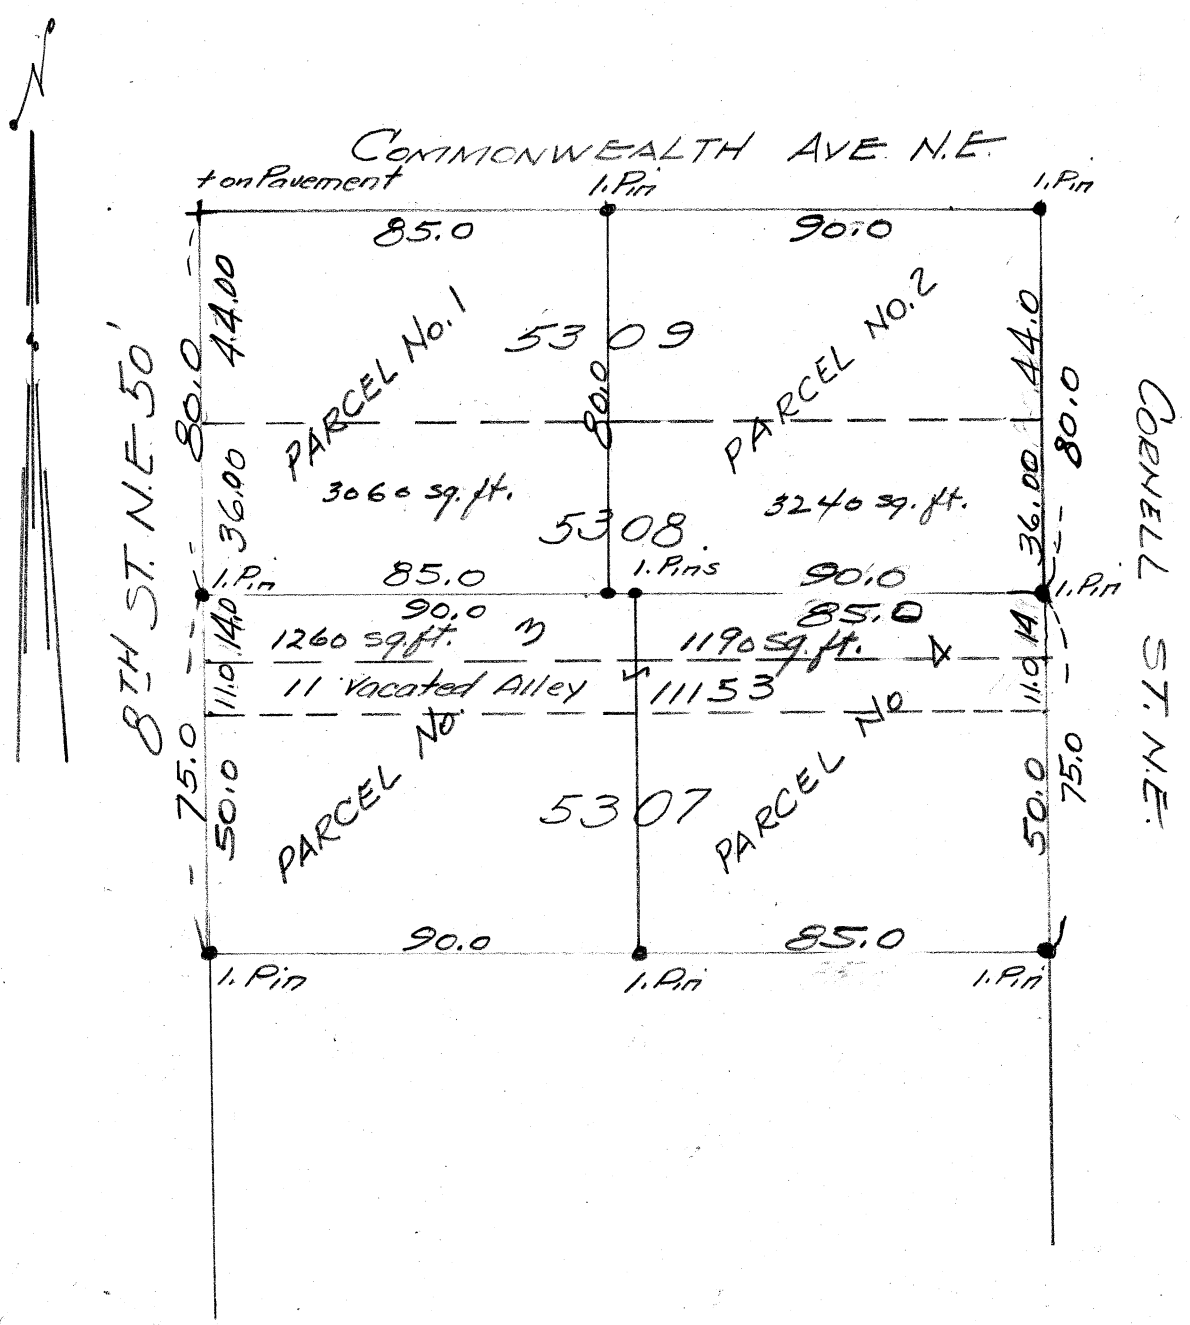 N
COMMONWEALTH AVE. N.E.
+ on Pavement
1. Pin
1. Pin
85.0
90.0
44.00
PARCEL No. 1
5309
PARCEL No. 2
44.0
80.0
8TH ST. N.E-50'
80.0
80.0
CORNELL ST. N.E.
36.00
3060 sq. ft.
5308
3240 sq. ft.
36.00
1. Pin
85.0
1. Pins
90.0
1. Pin
90.0
85.0
14.0
1260 sq. ft.
3
1190 sq. ft.
4
14
11.0
11' Vacated Alley
11153
11.0
75.0
50.0
PARCEL No.
5307
PARCEL No
50.0
75.0
90.0
85.0
1. Pin
1. Pin
1. Pin